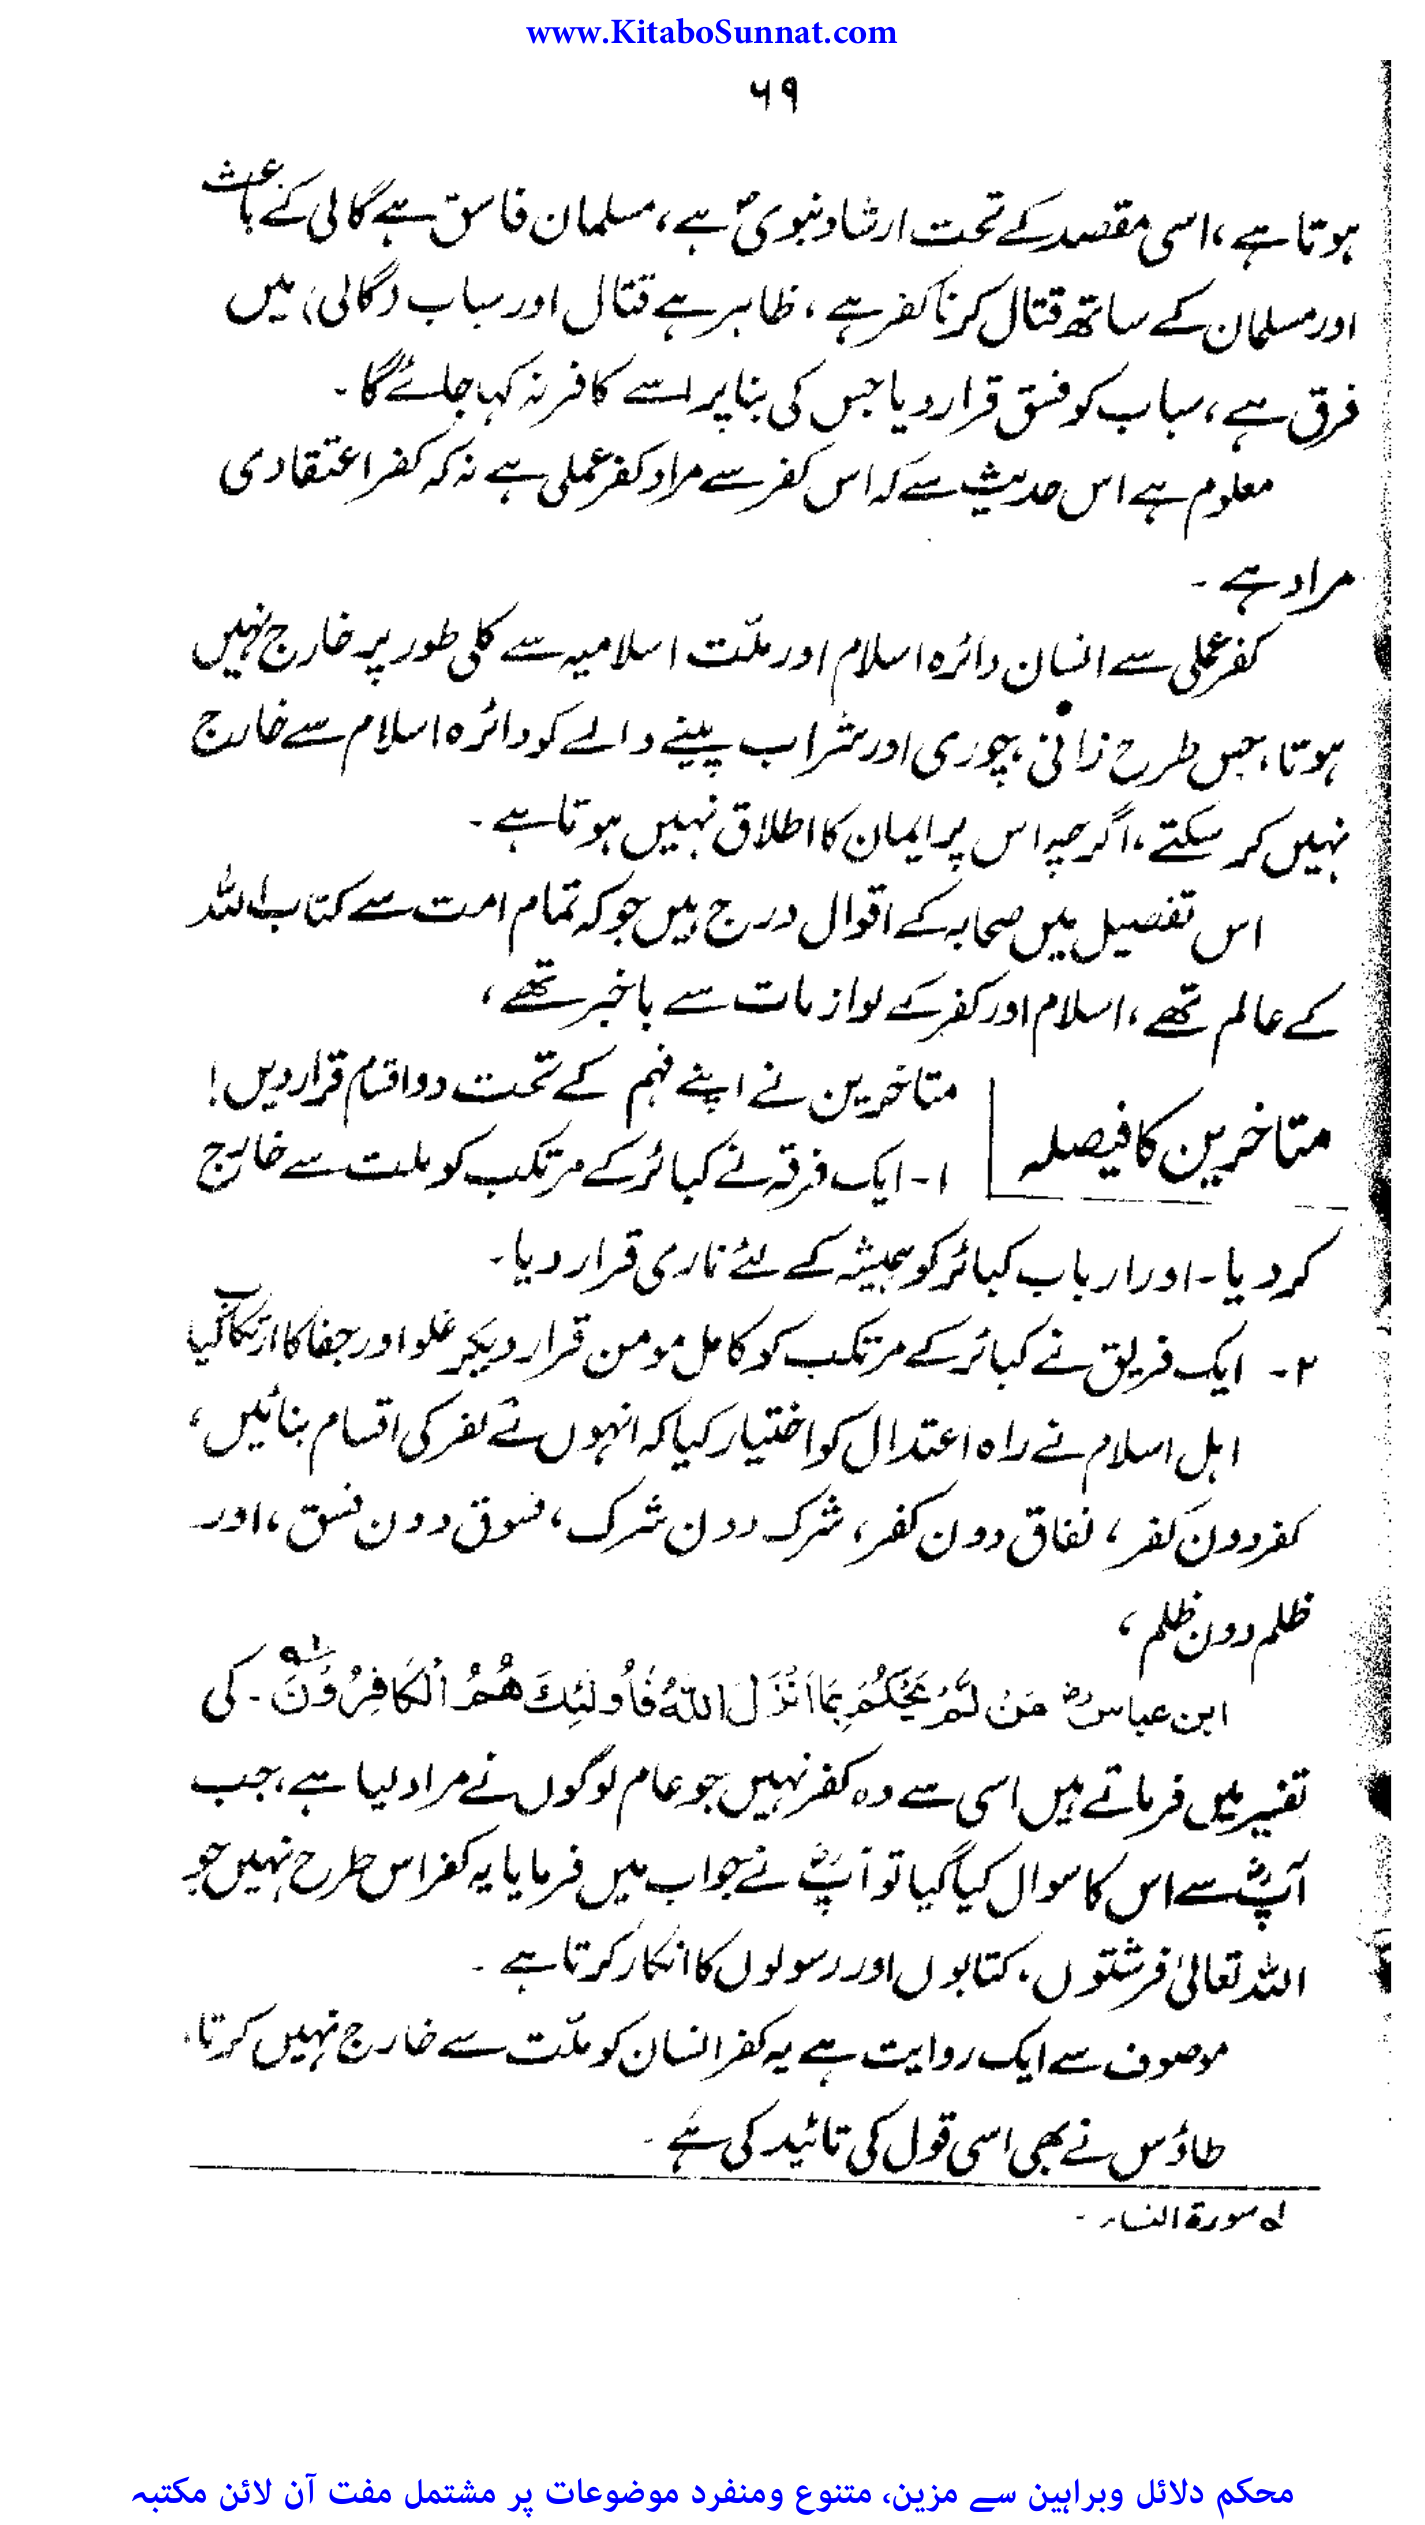 www.KitaboSunnat.com
۶۹
ہوتا ہے، اسی مقصد کے تحت ارشاد نبویؐ ہے، مسلمان فاسق ہے گالی کے باعث
اور مسلمان کے ساتھ قتال کرنا کفر ہے، ظاہر ہے قتال اور سباب (گالی) میں
فرق ہے، سباب کو فسق قرار دیا جس کی بنا پر اسے کافر نہ کہا جائے گا۔
معلوم ہے اس حدیث سے کہ اس کفر سے مراد کفر عملی ہے نہ کہ کفر اعتقادی
مراد ہے۔
کفر عملی سے انسان دائرہ اسلام اور ملّت اسلامیہ سے کلی طور پر خارج نہیں
ہوتا، جس طرح زانی، چوری اور شراب پینے والے کو دائرہ اسلام سے خارج
نہیں کر سکتے، اگرچہ اس پر ایمان کا اطلاق نہیں ہوتا ہے۔
اس تفصیل میں صحابہ کے اقوال درج ہیں جو کہ تمام امت سے کتاب اللہ
کے عالم تھے، اسلام اور کفر کے لوازمات سے باخبر تھے،
متاخرین کا فیصلہ
متاخرین نے اپنے فہم کے تحت دو اقسام قرار دیں!
۱- ایک فرقہ نے کبائر کے مرتکب کو ملت سے خارج
کر دیا۔ اور ارباب کبائر کو ہمیشہ کے لئے ناری قرار دیا۔
۲- ایک فریق نے کبائر کے مرتکب کو کامل مومن قرار دیکر غلو اور جفا کا ارتکاب کیا
اہل اسلام نے راہ اعتدال کو اختیار کیا کہ انہوں نے کفر کی اقسام بنائیں،
کفر دون کفر، نفاق دون کفر، شرک دون شرک، فسوق دون فسق، اور
ظلم دون ظلم،
ابن عباسؓ مَنْ لَّمْ يَحْكُمْ بِمَا اَنْزَلَ اللّٰهُ فَاُولٰئِكَ هُمُ الْكَافِرُوْنَ۔ کی
تفسیر میں فرماتے ہیں اسی سے وہ کفر نہیں جو عام لوگوں نے مراد لیا ہے، جب
آپؓ سے اس کا سوال کیا گیا تو آپؓ نے جواب میں فرمایا یہ کفر اس طرح نہیں جو
اللہ تعالیٰ فرشتوں، کتابوں اور رسولوں کا انکار کرتا ہے۔
موصوف سے ایک روایت ہے یہ کفر انسان کو ملّت سے خارج نہیں کرتا،
طاؤس نے بھی اسی قول کی تائید کی ہے۔
لہ سورۃ النساء۔
محکم دلائل وبراہین سے مزین، متنوع ومنفرد موضوعات پر مشتمل مفت آن لائن مکتبہ